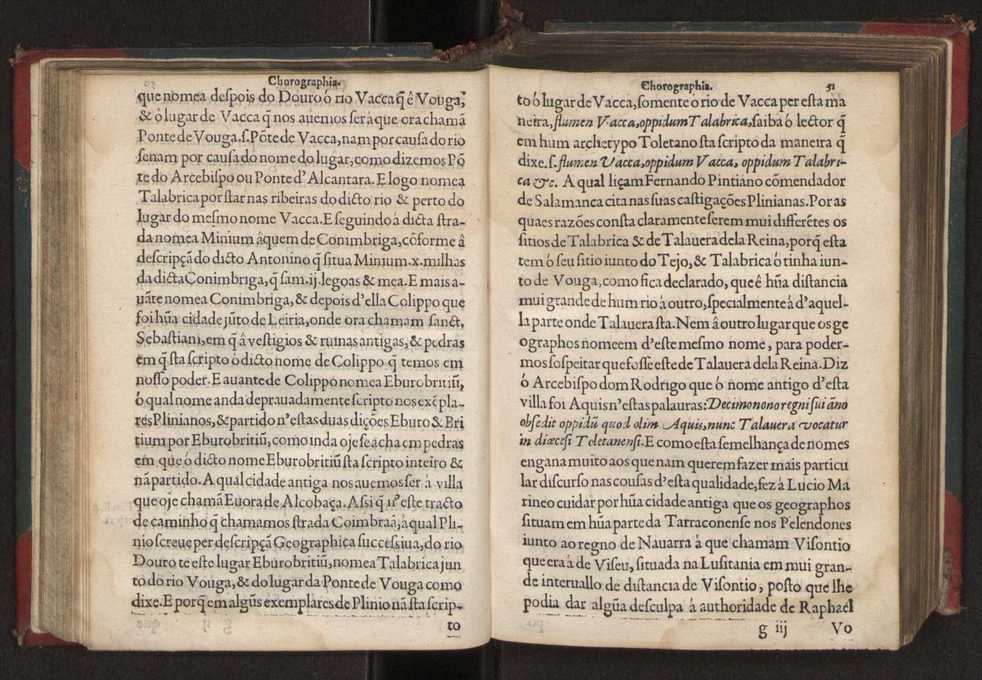 Chorographia.
que nomea despois do Douro ó rio Vacca q̃ ê Vouga,
& ó lugar de Vacca q̃ nos auemos ser á que ora chamã
Ponte de Vouga.s.Põte de Vacca, nam por causa do rio
senam por causa do nome do lugar, como dizemos Põ
te do Arcebispo ou Ponte d'Alcantara. E logo nomea
Talabrica por star nas ribeiras do dicto rio & perto do
lugar do mesmo nome Vacca. E seguindo á dicta stra-
da nomea Minium âquem de Conimbriga, cõforme â
descripçã do dicto Antonino q̃ situa Minium .x. milhas
da dicta Conimbriga, q̃ sam .ij. legoas & mea. E mais a-
uãte nomea Conimbriga, & depois d'ella Colippo que
foi hũa cidade jũto de Leiria, onde ora chamam sanct,
Sebastiani, em q̃ â vestigios & ruinas antigas, & pedras
em q̃ sta scripto ó dicto nome de Colippo q̃ temos em
nosso poder. E auante de Colippo nomea Eburobritiũ,
ó qual nome anda deprauadamente scripto nos exẽpla-
res Plinianos, & partido n'estas duas dições Eburo & Bri
tium por Eburobritiũ, como inda oje se acha em pedras
em que ó dicto nome Eburobritiũ sta scripto inteiro &
nã partido. A qual cidade antiga nos auemos ser á villa
que oje chamã Euora de Alcobaça. Assi q̃ n'este tracto
de caminho q̃ chamamos strada Coimbraã, á qual Pli-
nio screue per descripçã Geographica successiua, do rio
Douro te este lugar Eburobritiũ, nomea Talabrica jun
to do rio Vouga, & do lugar da Ponte de Vouga como
dixe. E porq̃ em algũs exemplares de Plinio nã sta scrip-
to
Chorographia. 51
to ó lugar de Vacca, somente o rio de Vacca per esta ma
neira, flumen Vacca, oppidum Talabrica, saiba ó lector q̃
em hum archetypo Toletano sta scripto da maneira q̃
dixe.s. flumen Vacca, oppidum Vacca, oppidum Talabri-
ca &c. A qual liçam Fernando Pintiano cõmendador
de Salamanca cita nas suas castigações Plinianas. Por as
quaes razões consta claramente serem mui differẽtes os
sitios de Talabrica & de Talauera dela Reina, porq̃ esta
tem ó seu sitio iunto do Tejo, & Talabrica ó tinha iun-
to de Vouga, como fica declarado, que ê hũa distancia
mui grande de hum rio á outro, specialmente á d'aquel-
la parte onde Talauera sta. Nem â outro lugar que os ge
ographos nomeem d'este mesmo nome, para poder-
mos sospeitar que fosse este de Talauera dela Reina. Diz
ó Arcebispo dom Rodrigo que ó nome antigo d'esta
villa foi Aquis n'estas palauras: Decimo nono regni sui ãno
obsedit oppidũ quod olim Aquis, nunc Talauera vocatur
in diœcesi Toletanensi. E como esta semelhança de nomes
engana muito aos que nam querem fazer mais particu
lar discurso nas cousas d'esta qualidade, fez á Lucio Ma
rineo cuidar por hũa cidade antiga que os geographos
situam em hũa parte da Tarraconense nos Pelendones
iunto ao regno de Nauarra á que chamam Visontio
que era á de Viseu, situada na Lusitania em mui gran-
de interuallo de distancia de Visontio, posto que lhe
podia dar algũa desculpa á authoridade de Raphael
g iij Vo